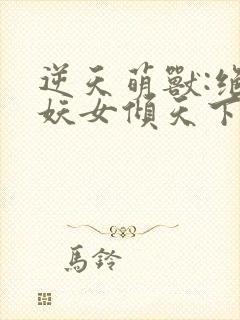 逆天萌獸:絕
妖女傾天下
馬鈴